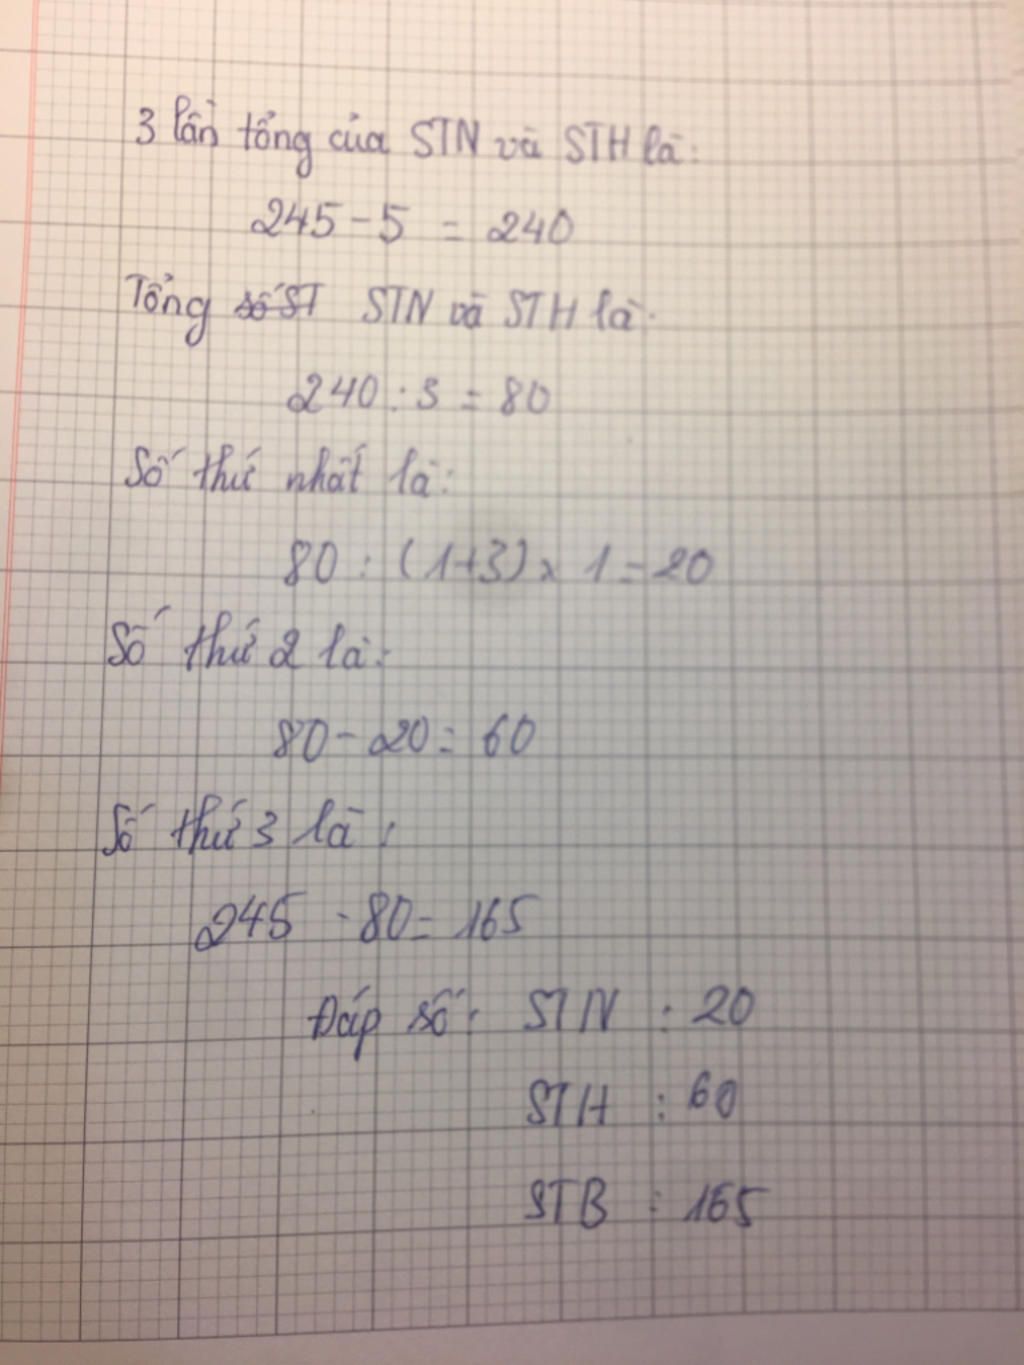 3 lần tổng của STN và STH là:
245 - 5 = 240
Tổng số ST STN và STH là:
240 : 3 = 80
Số thứ nhất là:
80 : (1+3) x 1 = 20
Số thứ 2 là:
80 - 20 = 60
Số thứ 3 là:
245 - 80 = 165
Đáp số: STN : 20
STH : 60
STB : 165